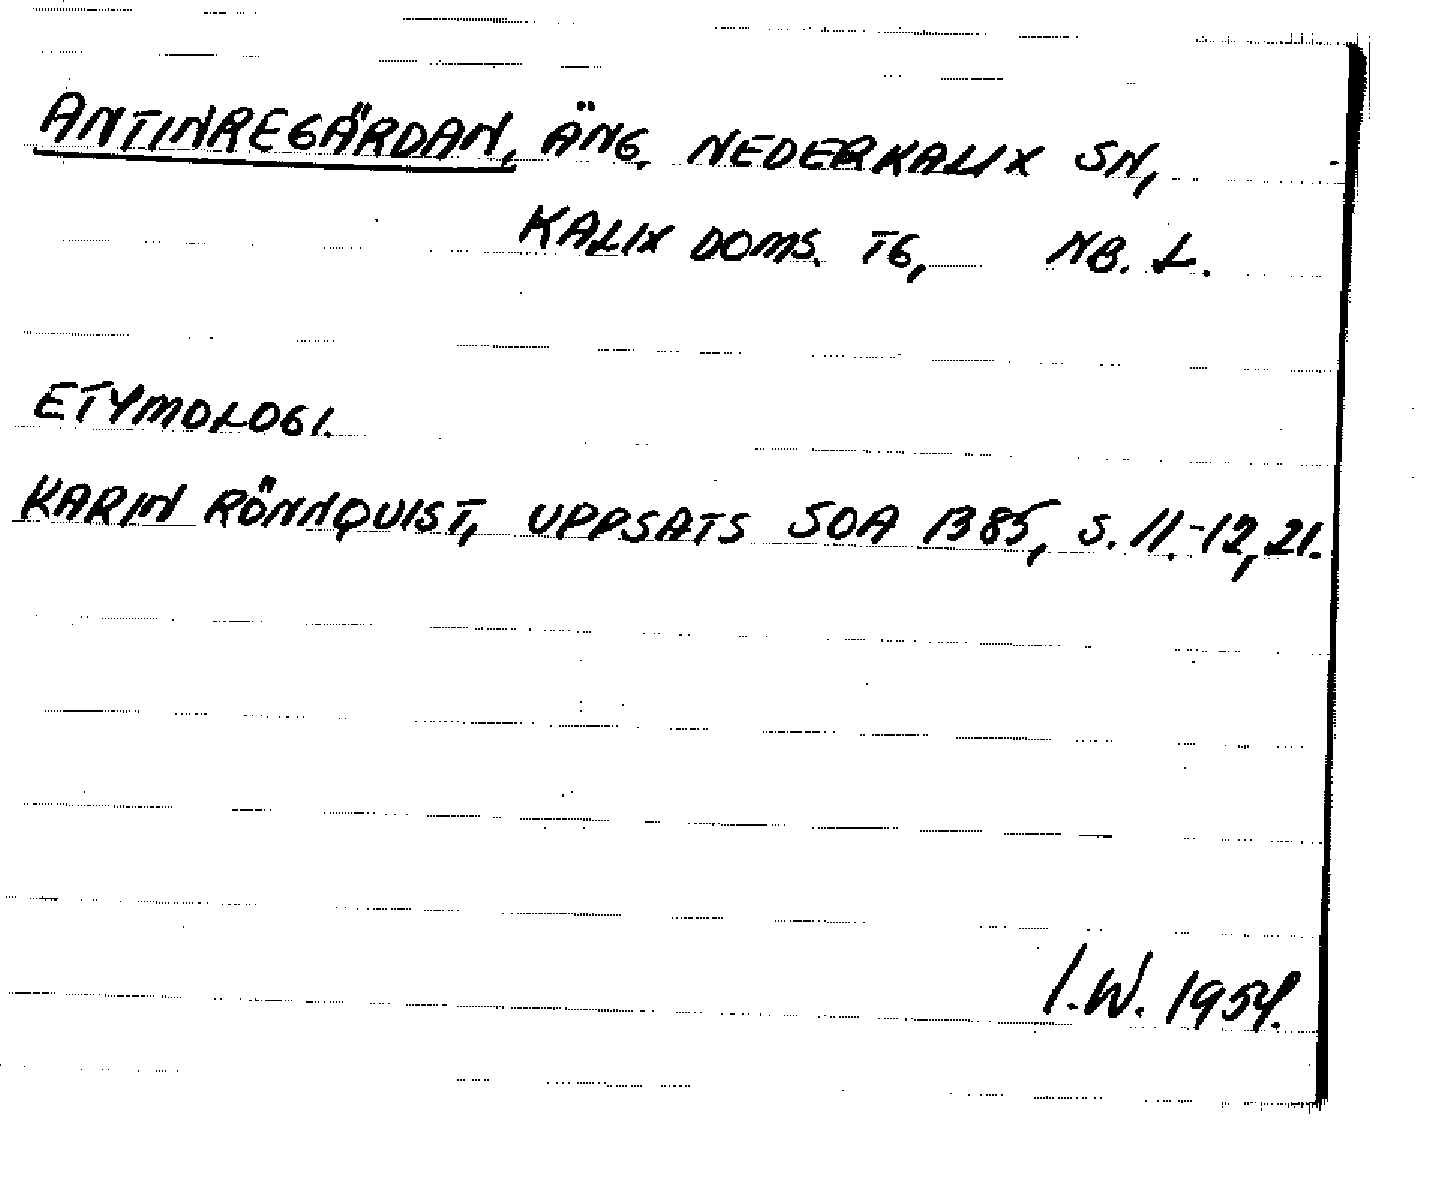 ANTINREGÄRDAN, ÄNG. NEDERKALIX SN,
KALIX DOMS. TG, NB. L.
ETYMOLOGI.
KARIN RÖNNQUIST, UPPSATS SOA B 85, S. 11.-12, 21.
I.W. 1954.